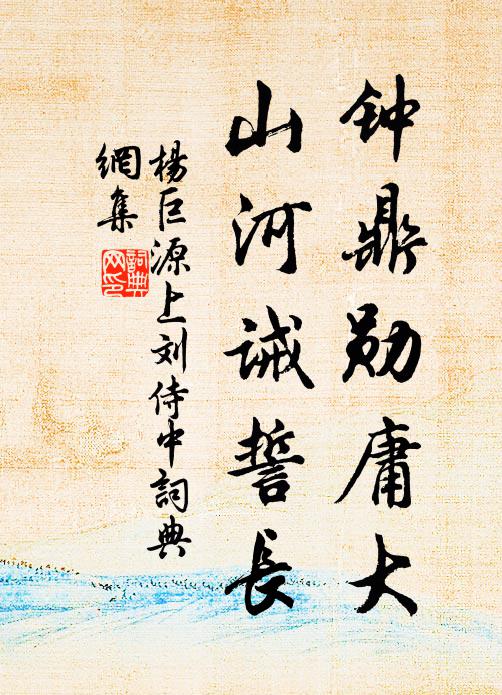 钟鼎勋庸大
山河诫誓長
楊巨源上刘侍中詞典
網集
詞典
网印